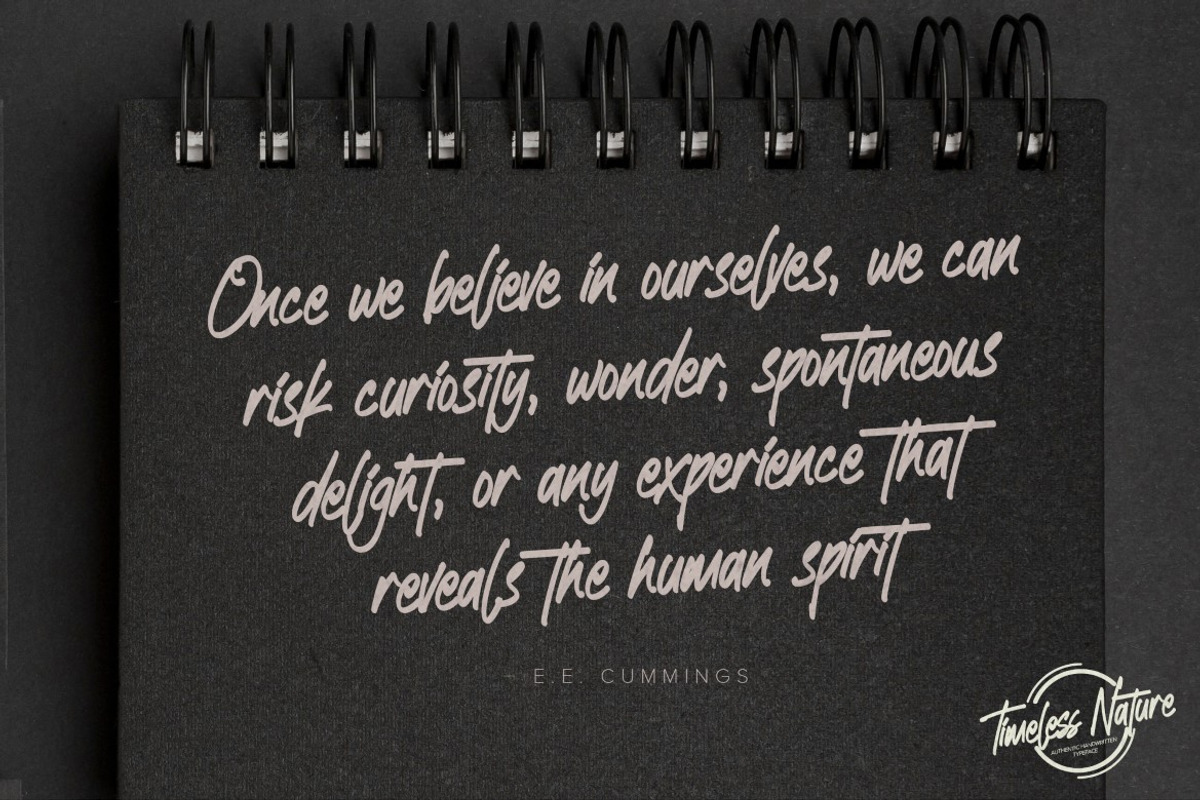 Once we believe in ourselves, we can
risk curiosity, wonder, spontaneous
delight, or any experience that
reveals the human spirit
- E.E. CUMMINGS
Timeless Nature
AUTHENTIC HANDWRITTEN
TYPEFACE